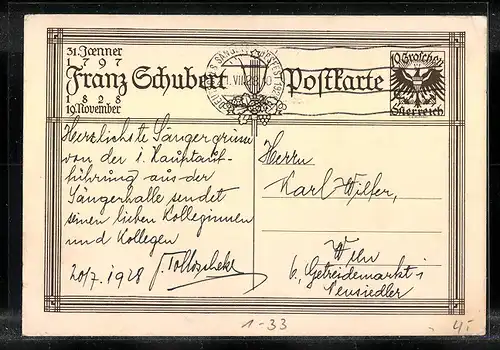 31. Jænner
1797
Franz Schubert
1828
19. November
Postkarte
10 Groschen
Österreich
Herzlichste Sängergrüsse
von der 1. Hauptauf-
führung aus der
Sängerhalle sendet
seinen lieben Kolleginnen
und Kollegen
20/7. 1928
Herrn
Karl
Wien
6, Getreidemarkt 1
Neusiedler
1-33
4,-